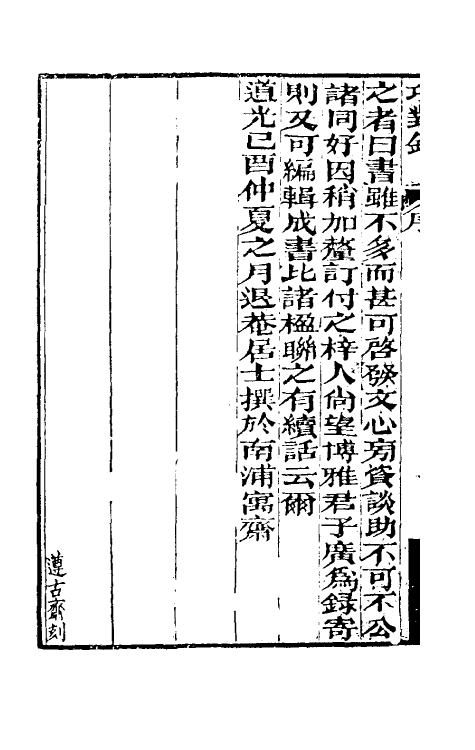 巧對錄 序
之者曰書雖不多而甚可啓發文心旁資談助不可不公
諸同好因稍加釐訂付之梓人尙望博雅君子廣爲錄寄
則又可編輯成書比諸楹聯之有續話云爾
道光己酉仲夏之月退菴居士撰於南浦寓齋
遵古齋刻